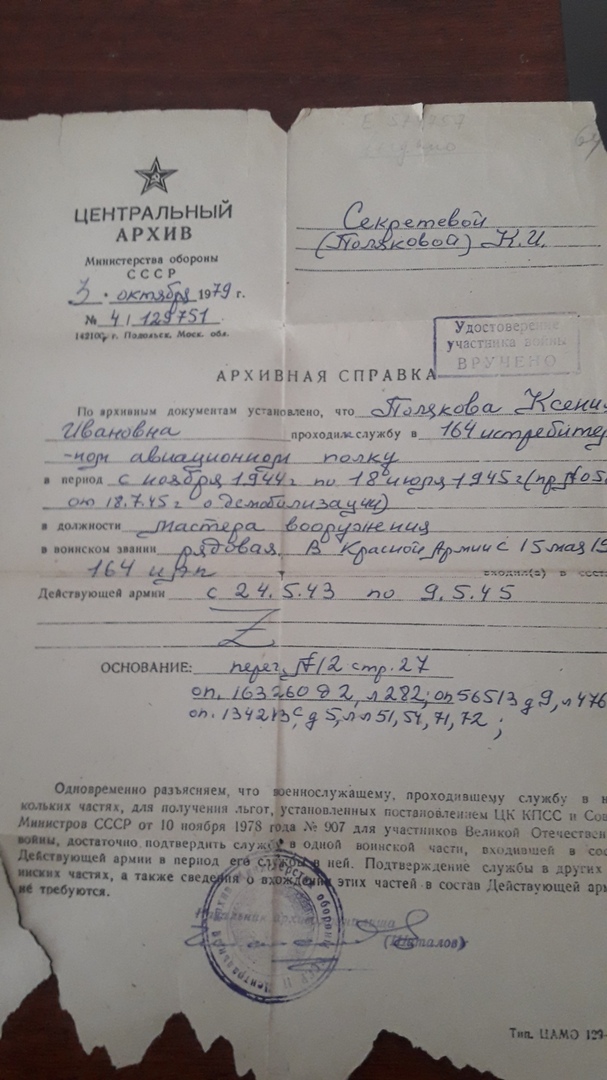 ЦЕНТРАЛЬНЫЙ
АРХИВ
Министерства обороны
СССР
3 • октября 1979 г.
№ 41 129751
142100, г. Подольск, Моск. обл.
Секретевой
(Поляковой) К.И.
Удостоверение
участника войны
ВРУЧЕНО
АРХИВНАЯ СПРАВКА
По архивным документам установлено, что Полякова Ксения
Ивановна проходила службу в 164 истребитель
-ном авиационном полку
в период с ноября 1944 г по 18 июля 1945 г (пр №05
от 18.7.45г о демобилизации)
в должности мастера вооружения
в воинском звании рядовая. В Красной Армии с 15 мая 19
164 иап входил(а) в сост
Действующей армии с 24.5.43 по 9.5.45
Z
ОСНОВАНИЕ: №12 стр. 27
оп. 163260 д 2, л 282; оп 56513 д 9, л 476
оп. 134213с, д 5, лл 51, 54, 71, 72;
Одновременно разъясняем, что военнослужащему, проходившему службу в не
кольких частях, для получения льгот, установленных постановлением ЦК КПСС и Сове
Министров СССР от 10 ноября 1978 года № 907 для участников Великой Отечествен
войны, достаточно подтвердить службу в одной воинской части, входившей в сос
Действующей армии в период его службы в ней. Подтверждение службы в других
инских частях, а также сведения о вхождении этих частей в состав Действующей арм
не требуются.
(Шаталов)
Тип. ЦАМО 129-